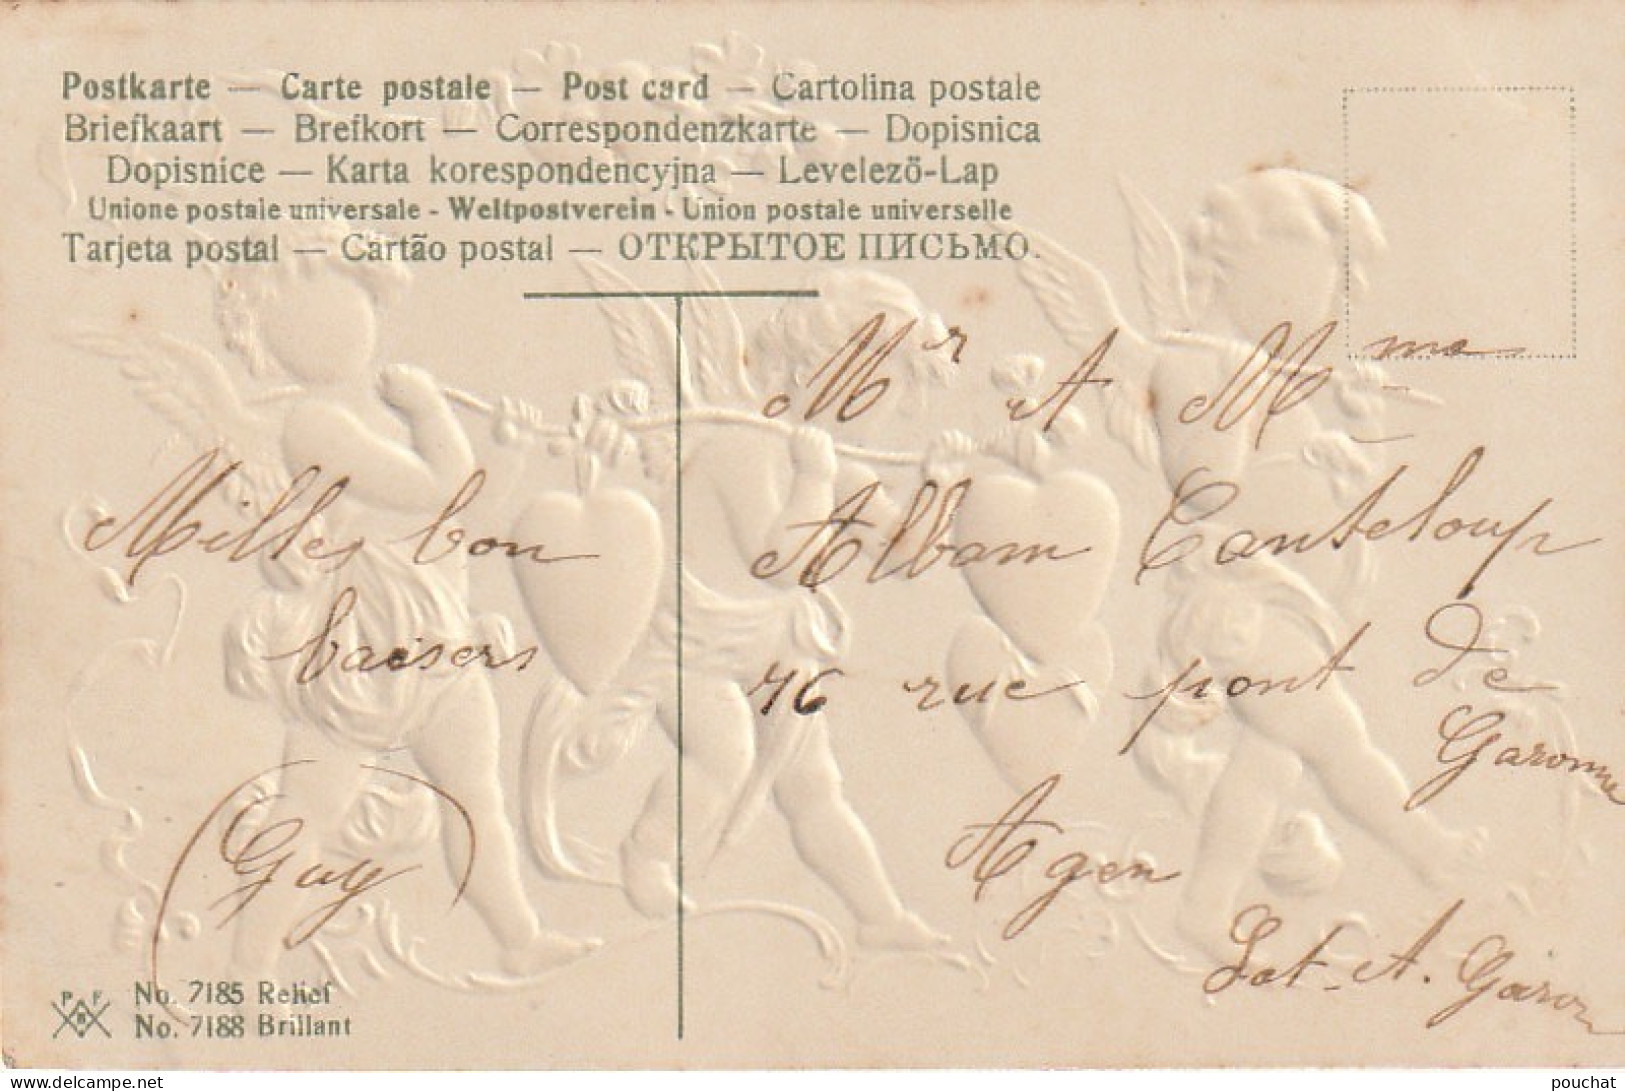 Postkarte — Carte postale — Post card — Cartolina postale
Briefkaart — Brefkort — Correspondenzkarte — Dopisnica
Dopisnice — Karta korespondencyjna — Levelezö-Lap
Unione postale universale - Weltpostverein - Union postale universelle
Tarjeta postal — Cartão postal — ОТКРЫТОЕ ПИСЬМО.
Milles bon
baisers
(Guy)
Mr et Mme
Alban Canteloup
76 rue pont de
Garonne
Agen
Lot. et. Garon
P F B
No. 7185 Relief
No. 7188 Brillant
www.delcampe.net
pouchat